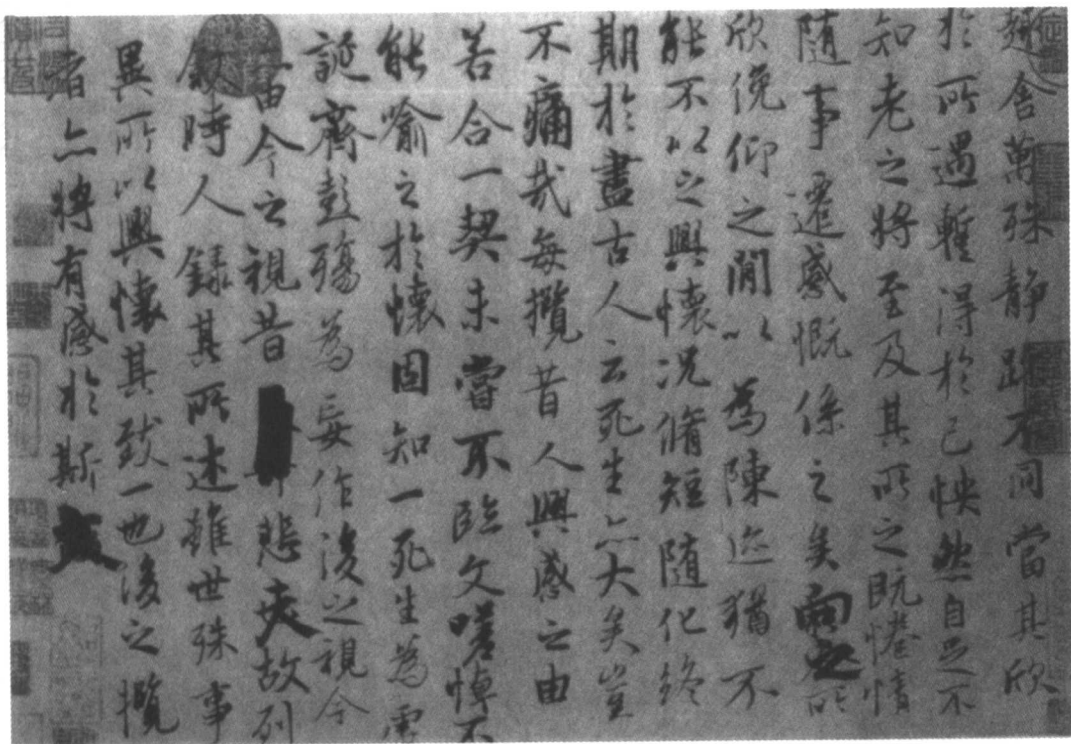 趣舍萬殊静躁不同當其欣
於所遇蹔得於己怏然自足不
知老之將至及其所之既惓情
隨事遷感慨係之矣向之所
欣俛仰之閒以為陳迹猶不
能不以之興懷況脩短隨化終
期於盡古人云死生亦大矣豈
不痛哉每攬昔人興感之由
若合一契未嘗不臨文嗟悼不
能喻之於懷固知一死生為虛
誕齊彭殤為妄作後之視今
亦由今之視昔悲夫故列
敘時人録其所述雖世殊事
異所以興懷其致一也後之攬
者亦將有感於斯文